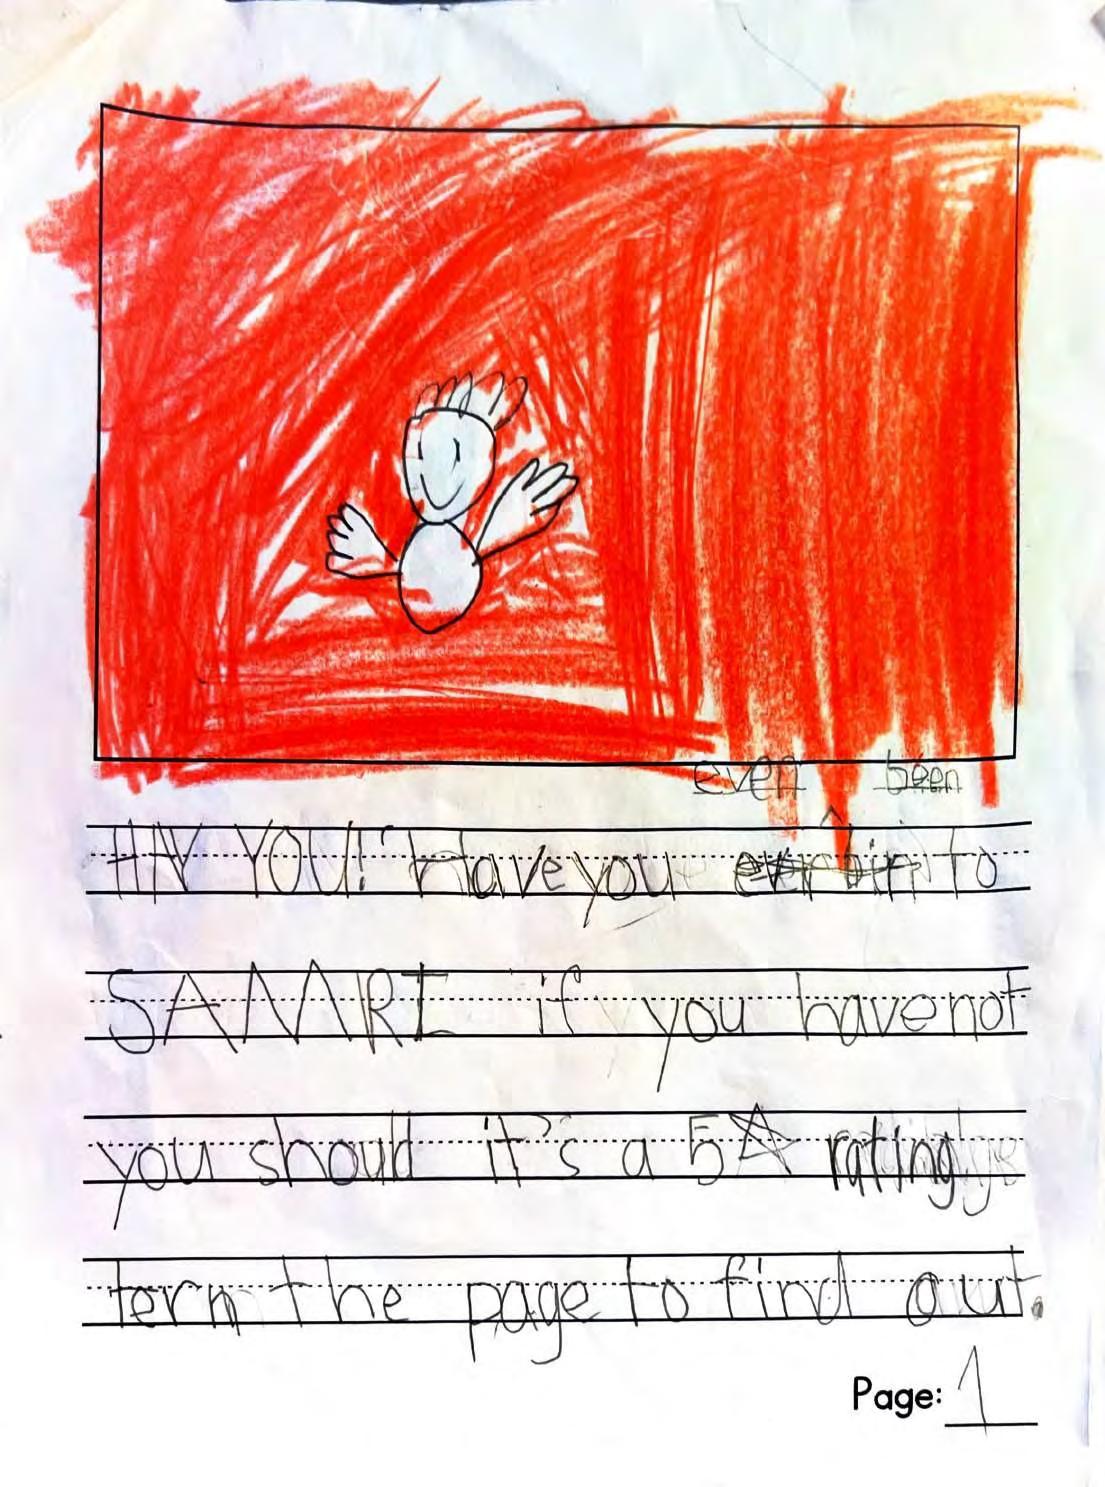 even been
HIY YOU! Have you ever bin to
SAMRI if you have not
you should it's a 5☆ rating
tern the page to find out.
Page: 1